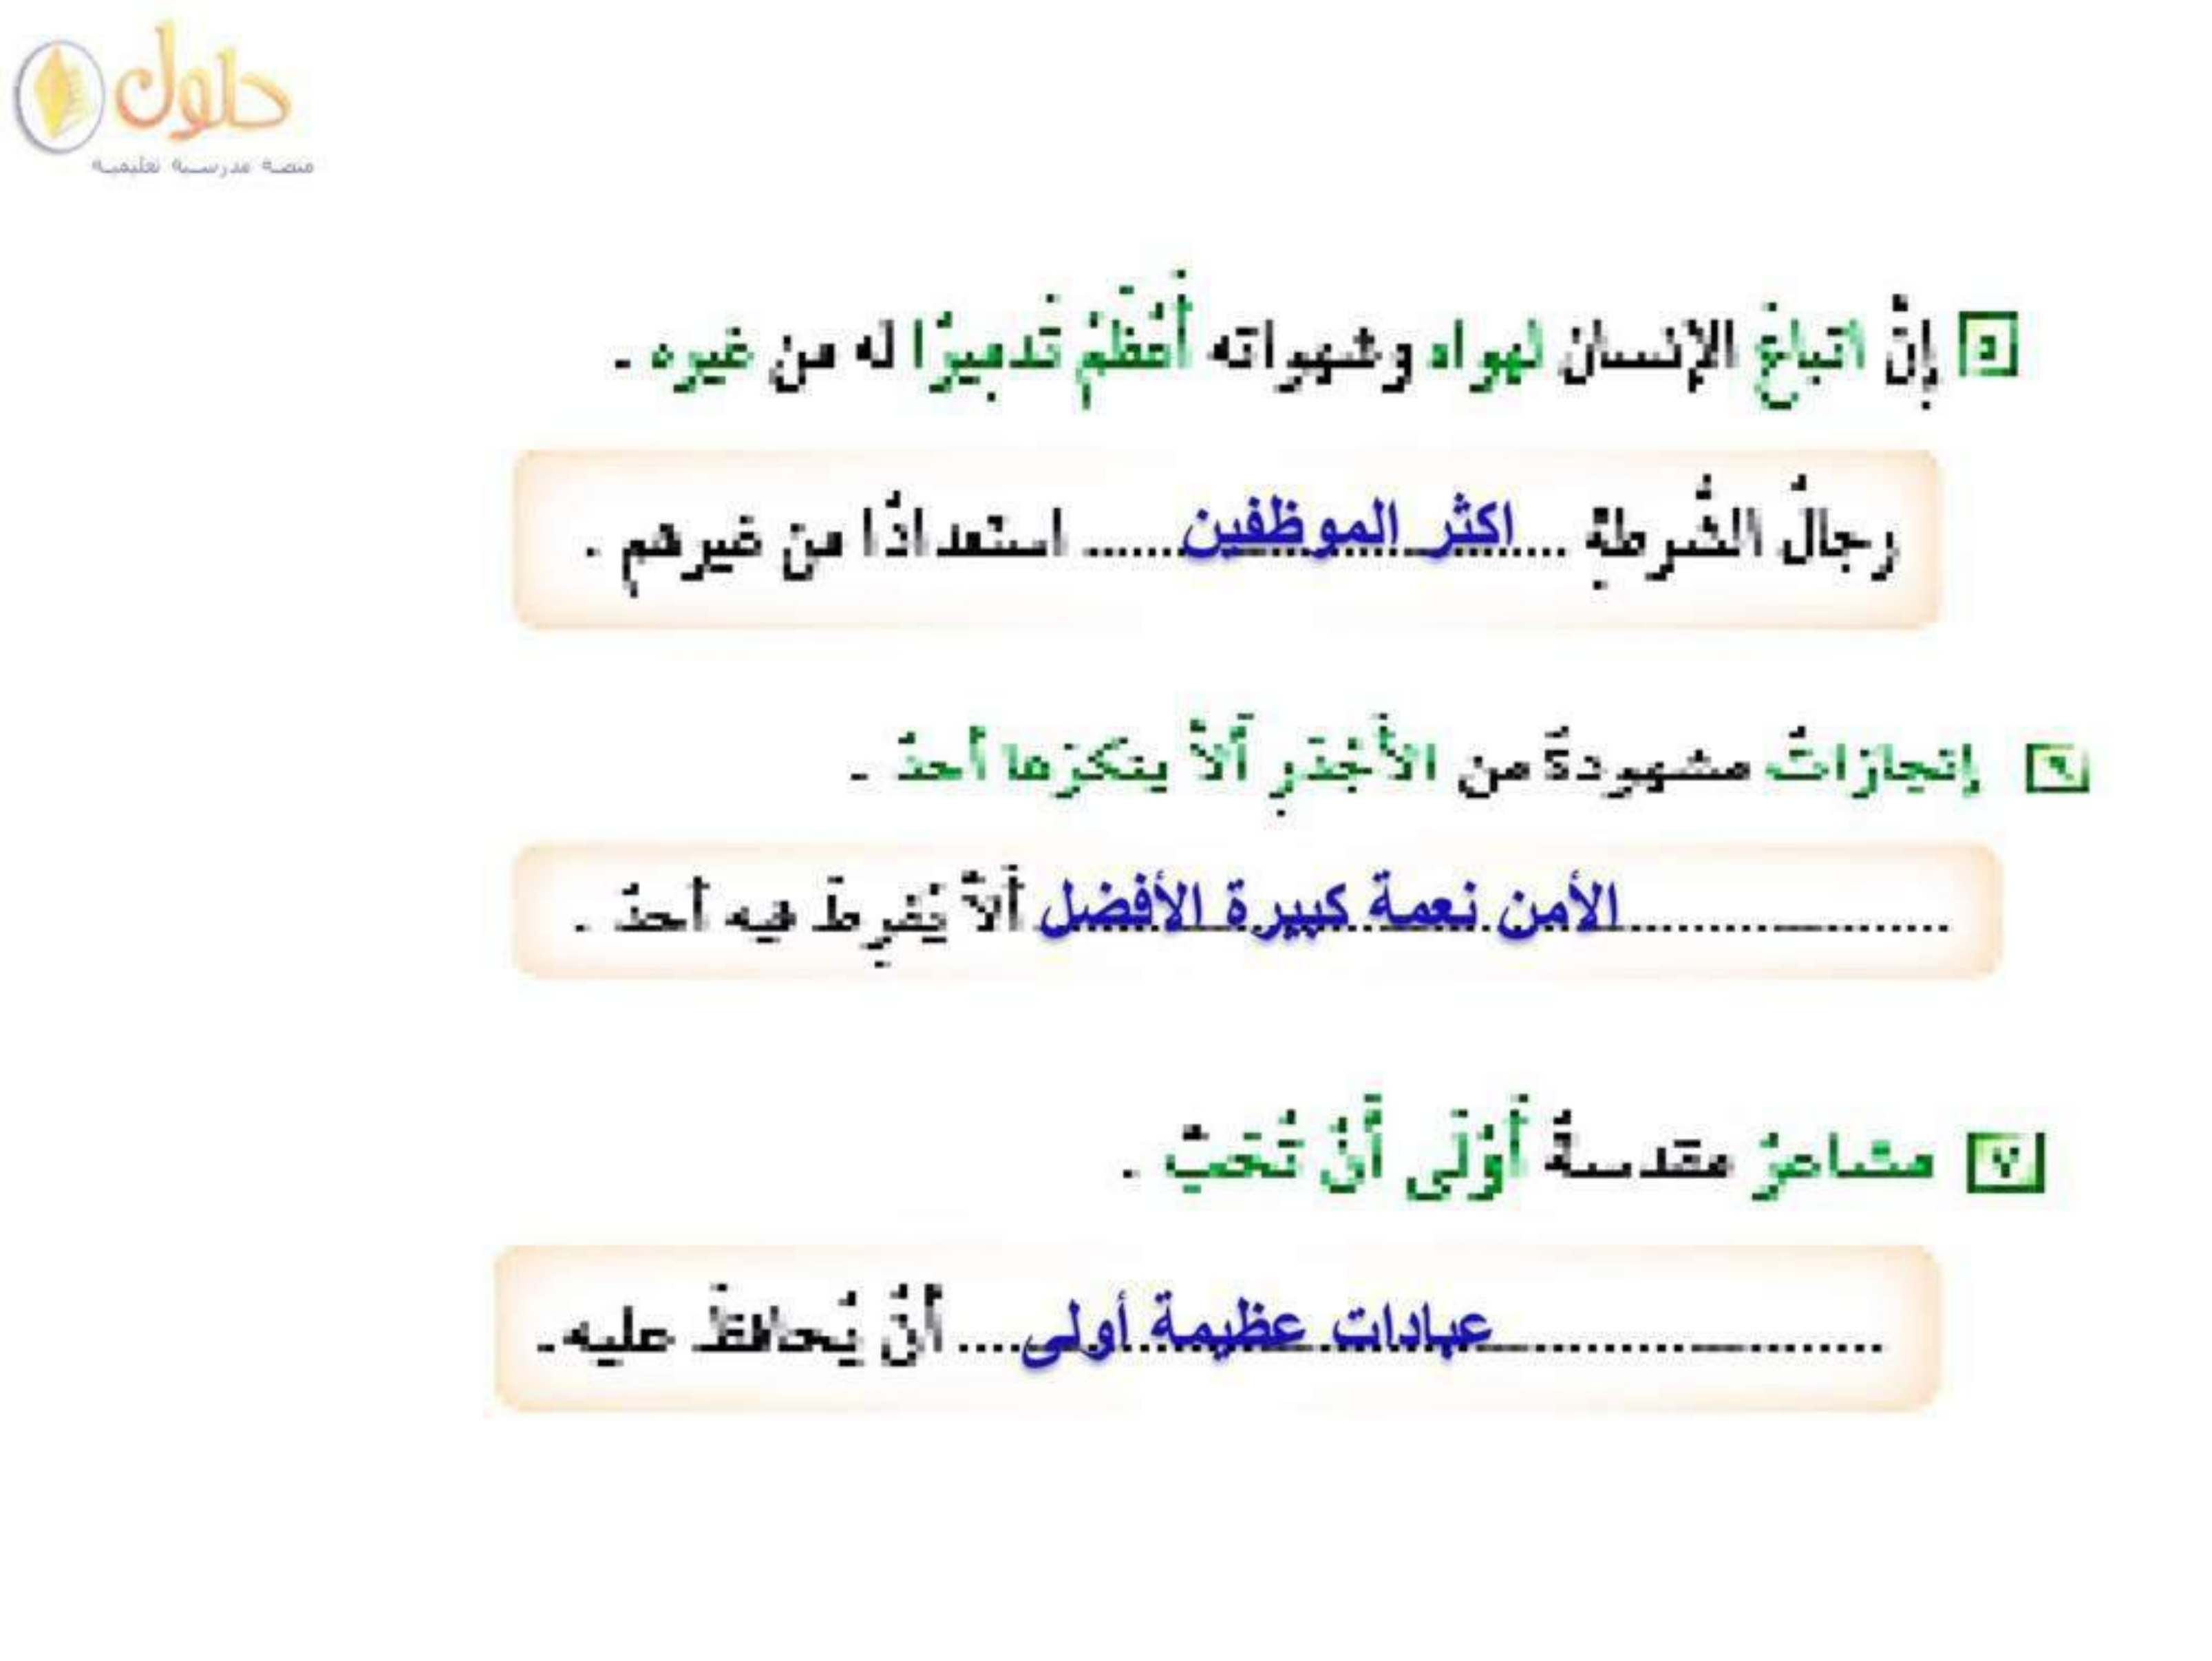 حلول
منصة مدرسية تعليمية
٥ إنَّ اتباعَ الإنسان لهواه وشهواته أَعْظَمُ تَدميرًا له من غيره .
رجالُ الشُّرطةِ .... اكثر الموظفين ...... استعدادًا من غيرهم .
٦ إنجازاتٌ مشهودةٌ من الأَجْدَرِ أَلاَّ ينكرَها أحدٌ .
.................... الأمن نعمة كبيرة الأفضل أَلاَّ يُفرِطَ فيه أحدٌ .
٧ مشاعرُ مقدسةٌ أَوْلَى أَنْ تُحَبَّ .
.................... عبادات عظيمة أولى .... أَنْ يُحافظَ عليه .